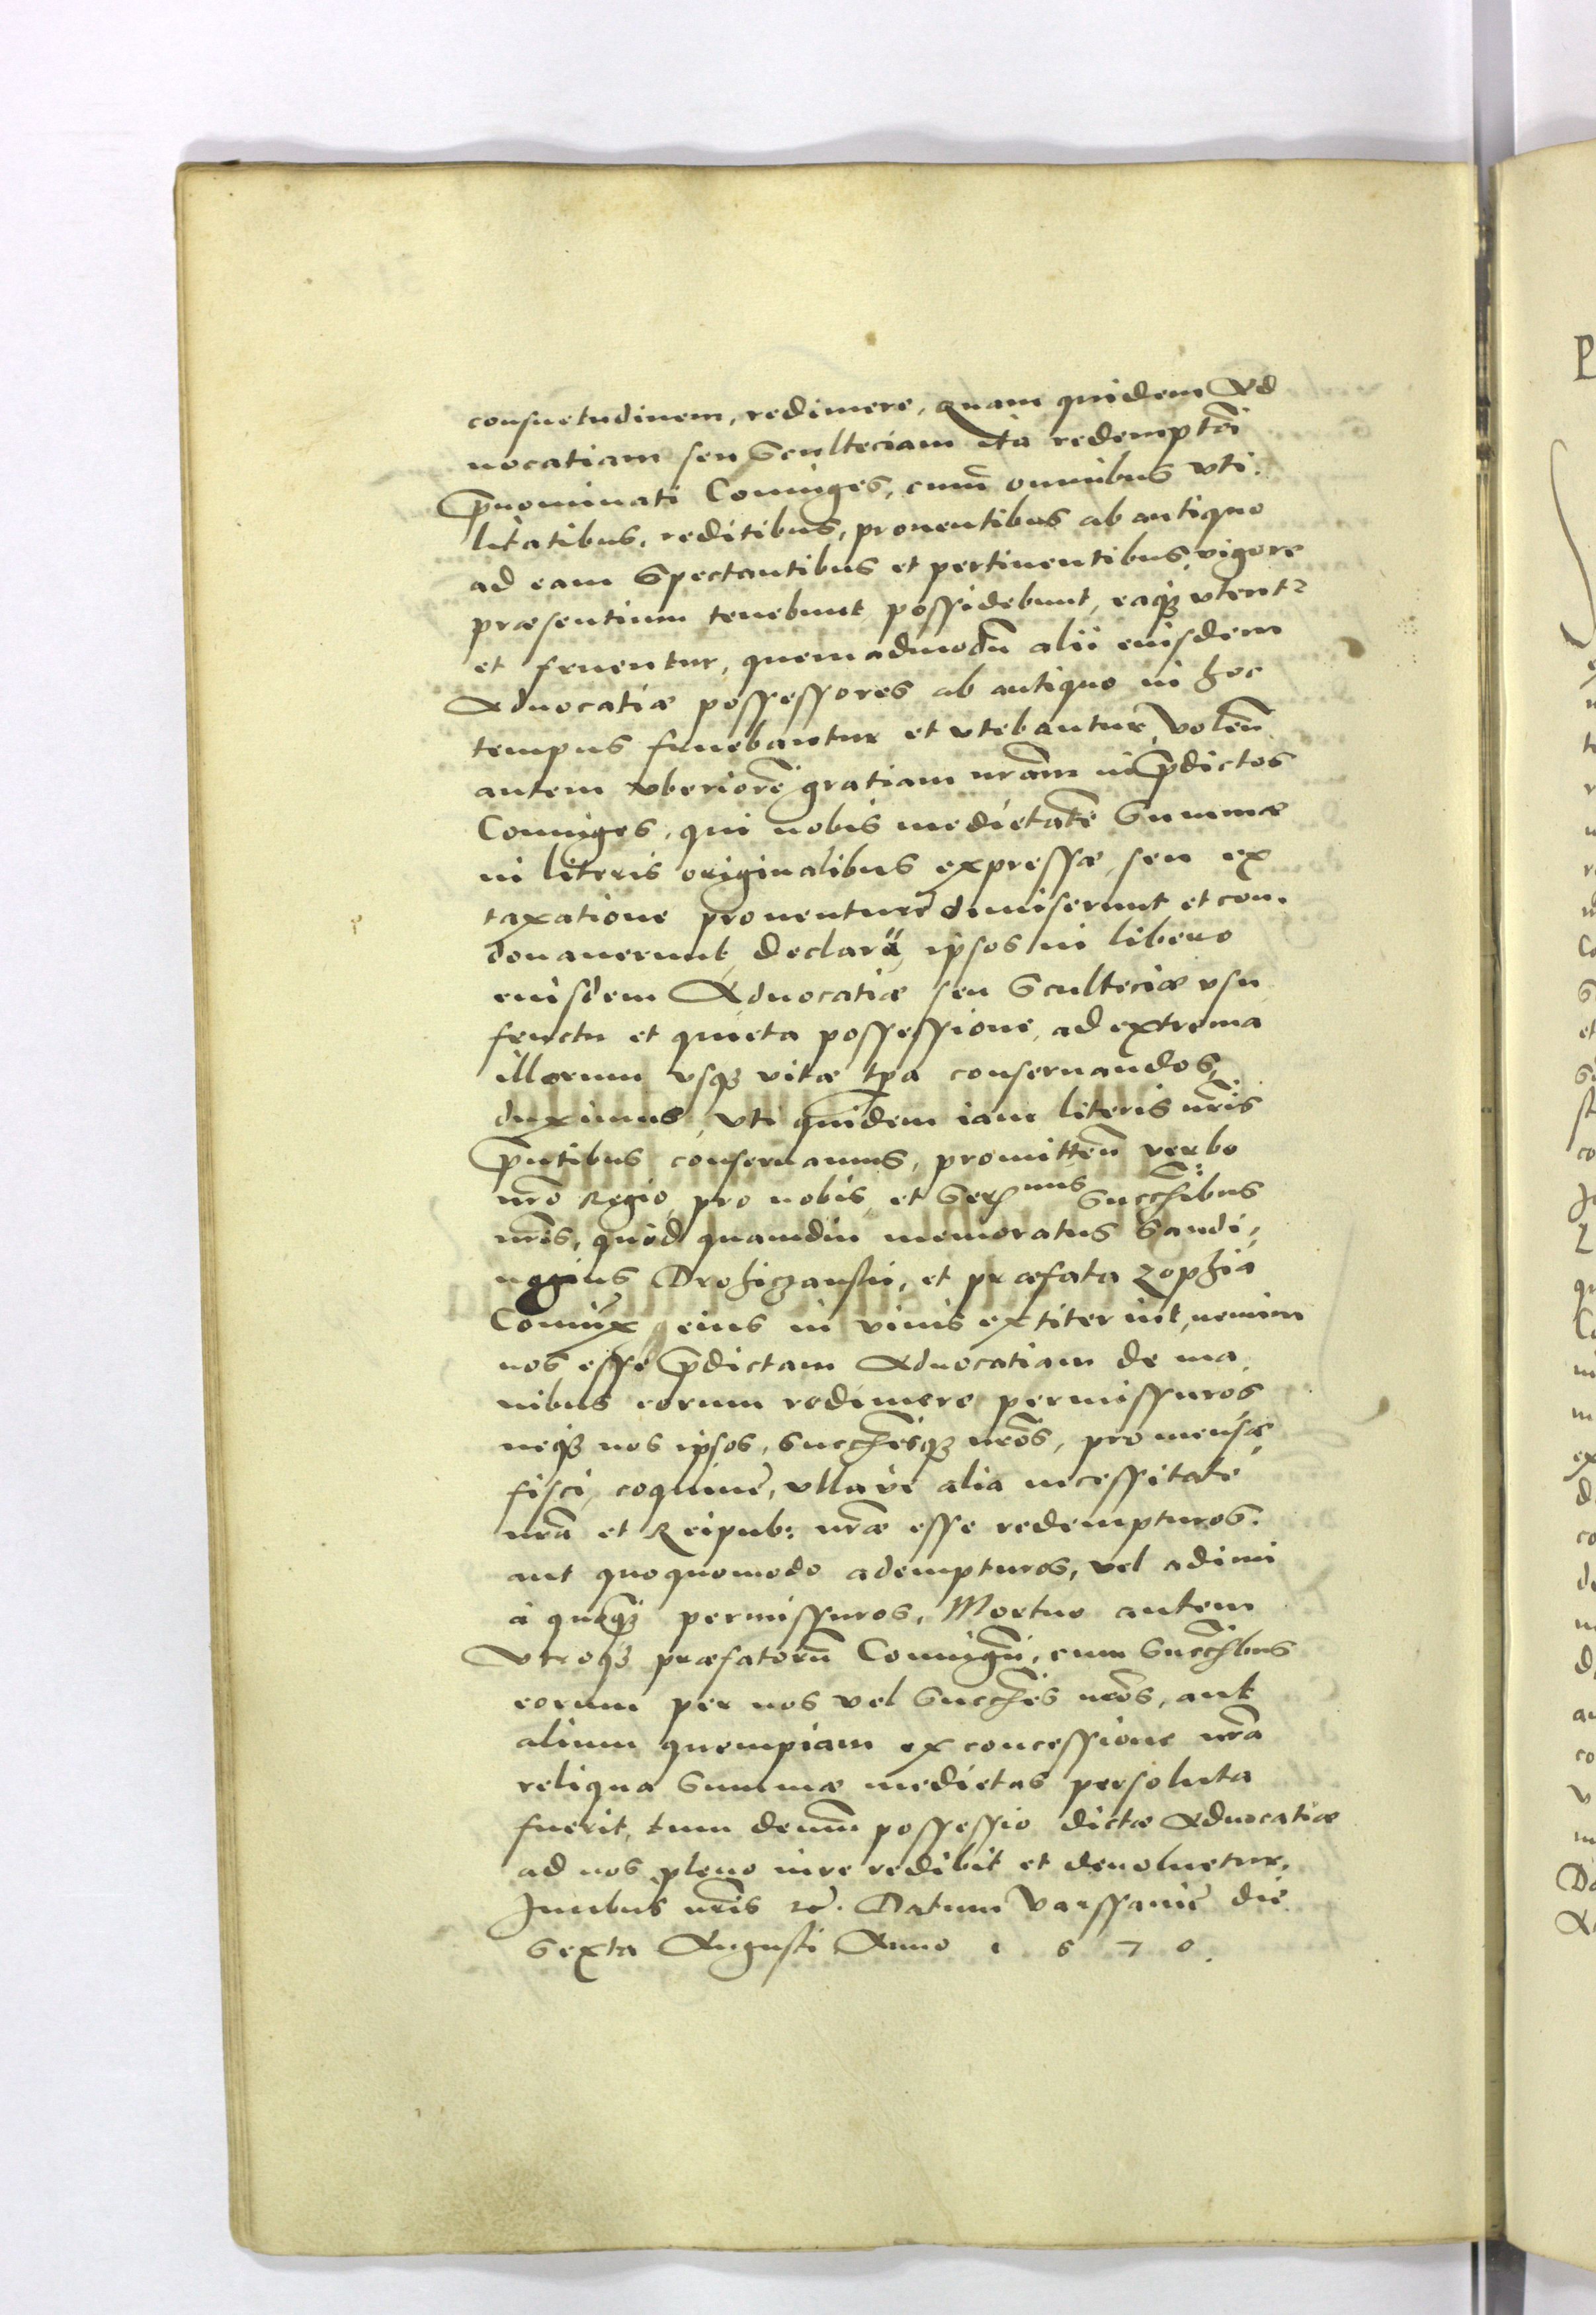 consuetudinem, redimere, quam quidem Ad
uocatiam seu Sculteciam ita redemptã
p̃nominati Coniuges, cum omnibus vti.
litatibus, reditibus, prouentibus ab antiquo
ad eam Spectantibus et pertinentibus, vigore
præsentium tenebunt possidebunt, eaq₃ vtent᷑
et fruentur, quemadmodũ alii eiusdem
Aduocatiæ possessores ab antiquo in hoc
tempus fruebantur et vtebantur, volen̄
autem vberiorẽ gratiam nr̃am in p̃dictos
Coniuges, qui nobis medietatẽ Summæ
in literis originalibus expressæ, seu ex
taxatione prouenturę dimiserunt et con.
donauerunt, declarã, ipsos in libero
eiusdem Aduocatiæ seu Sculteciæ vsu
fructu et quieta possessione, ad extrema
illorum vsq₃ vitæ tp̃a conseruandos
duximus, vti quidem iam literis nr̃is
p̃ntibus conseruamus, promitten̄ verbo
nr̃o Regio, pro nobis, et Ser^mis Succ̃ibus
nr̃is, quòd quamdiu memoratus Sandi,
uogius Drohiczanski, et præfata Zophia
Coniux eius in viuis extiterint, nemini
nos esse p̃dictam Aduocatiam de ma,
nibus eorum redimere permissuros
neq₃ nos ipsos, succh̃esq₃ nr̃os, pro mensæ,
fisci, coquinę, vllave alia necessitate
nr̃a et Reipub: nr̃æ esse redempturos.
aut quoquomodo adempturos, vel adimi
à quoq₃ permissuros, Mortuo autem
Vtroq₃ præfatorũ Coniugũ, cum Succh̃ibus
eorum per nos vel Succh̃es nr̃os, aut
alium quempiam ex concessione nr̃a
reliqua Summæ medietas persoluta
fuerit, tum demũ possessio dictæ Aduocatiæ
ad nos pleno iure redibit et deuoluetur.
Iuribus nr̃is zc̃. Datum Varssauię die
Sexta Augusti Anno 1 5 7 0.